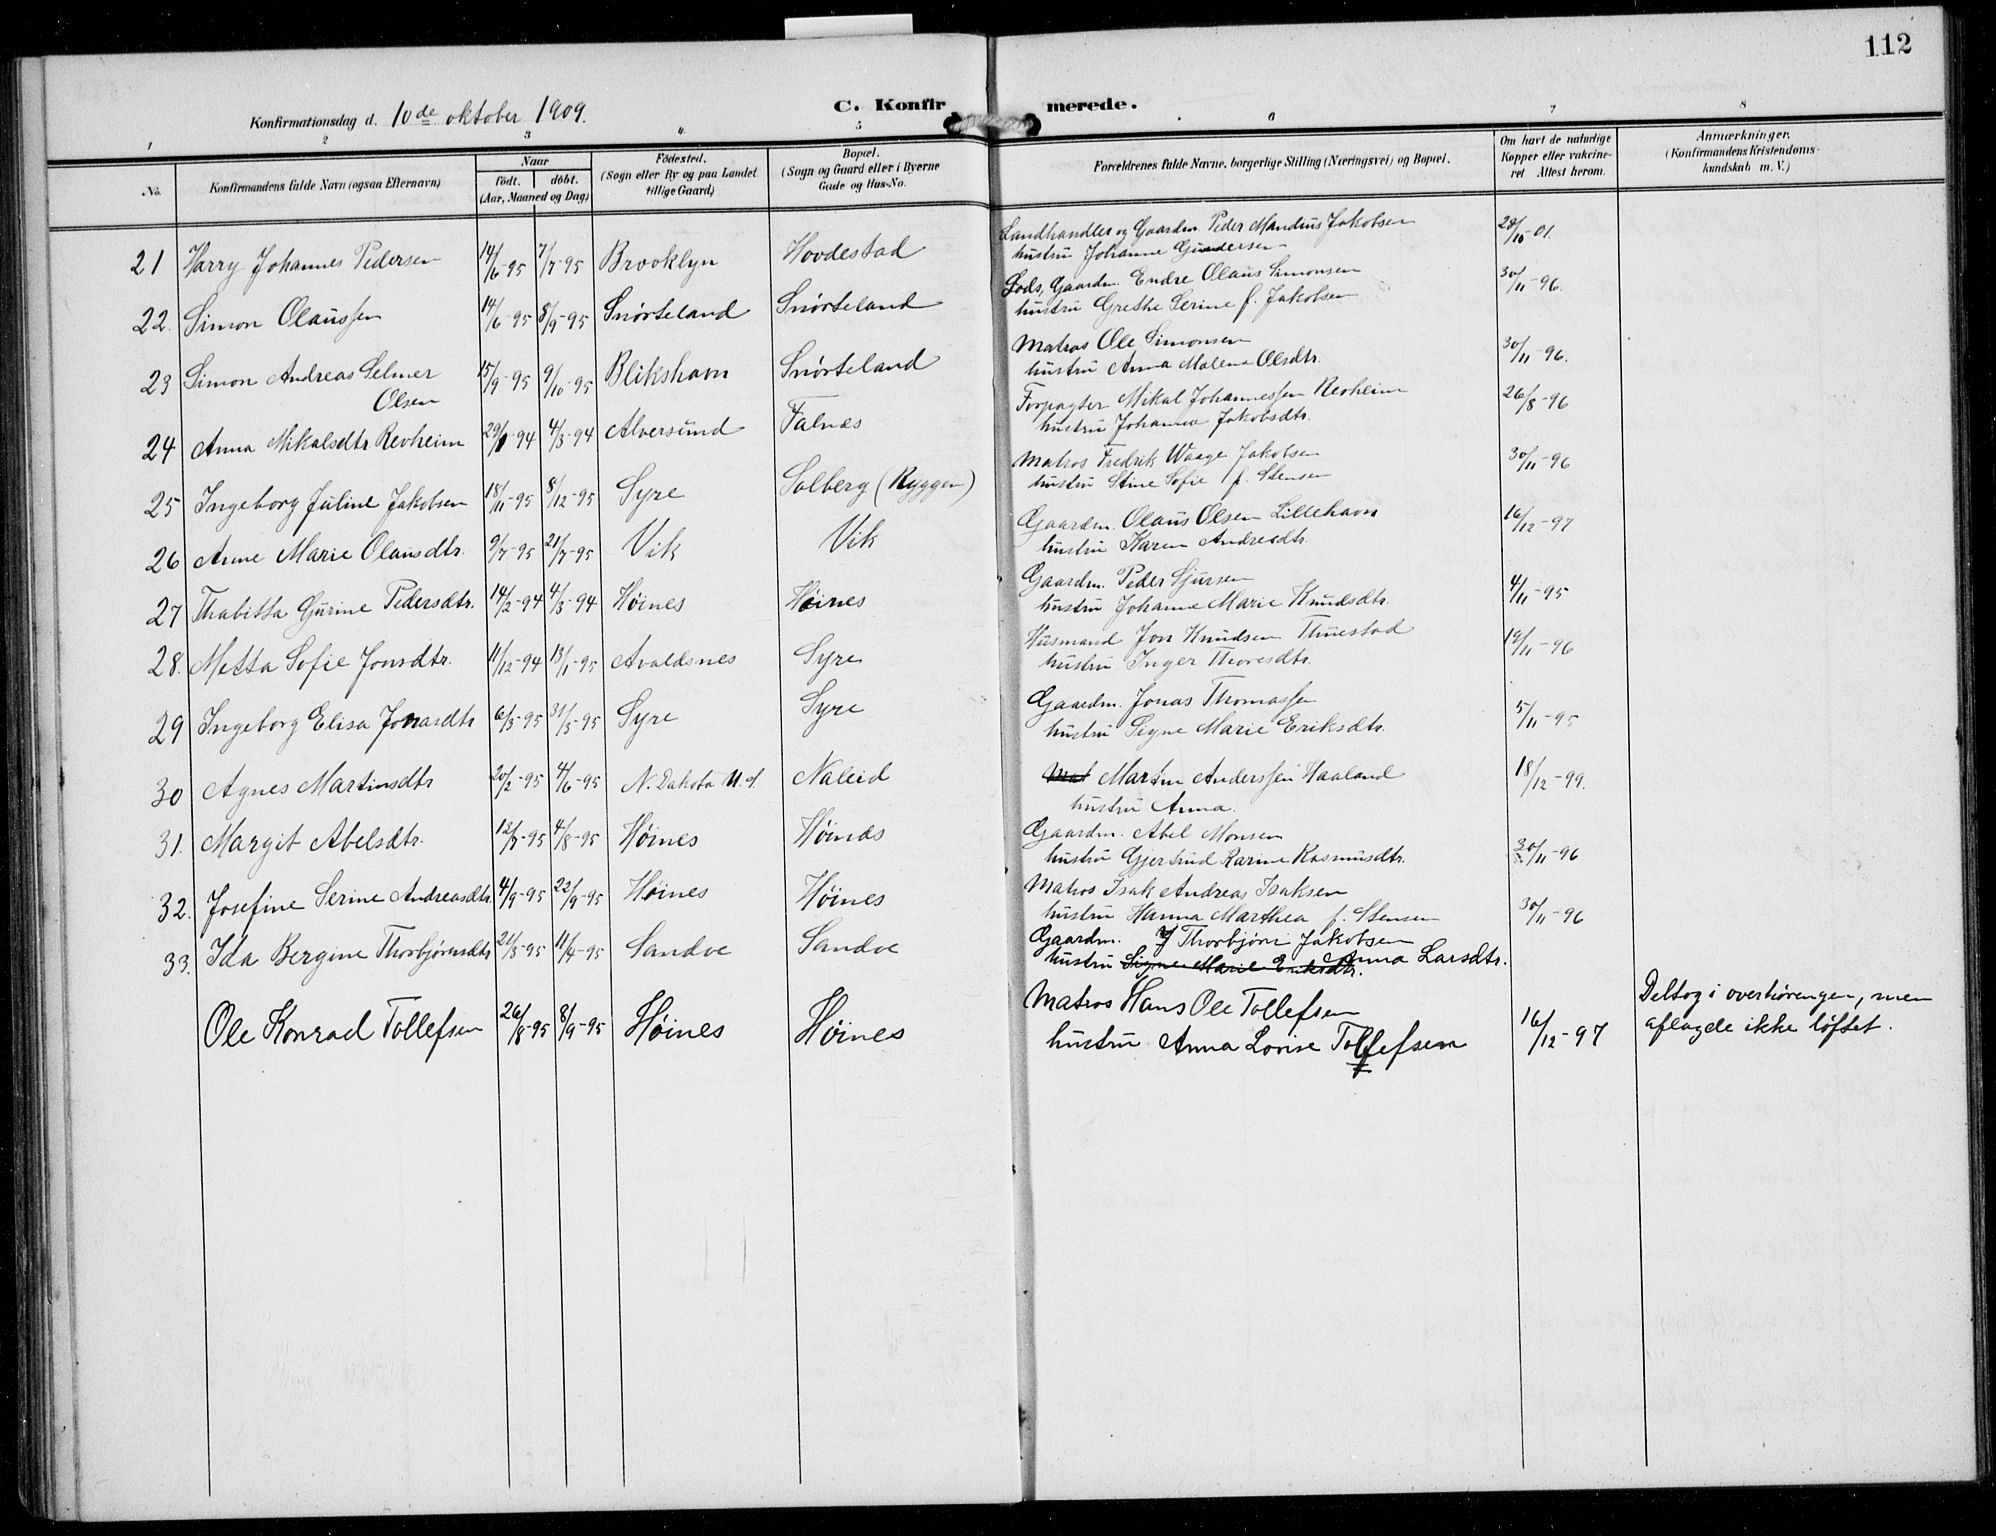 112
Konfirmationsdag d. 10de oktober 1909.
C. Konfirmerede.
1 2 3 4 5 6 7 8
No. Konfirmandens fulde Navn (ogsaa Efternavn) Naar født. døbt. (Aar, Maaned og Dag) Fødested. (Sogn eller By og paa Landet tillige Gaard) Bopæl. (Sogn og Gaard eller i Byerne Gade og Hus-No. Forældrenes fulde Navne, borgerlige Stilling (Næringsvei) og Bopæl. Om havt de naturlige Kopper eller vakcineret Attest herom. Anmærkninger. (Konfirmandens Kristendomskundskab m. V.)
21 Harry Johannes Pedersen 14/6-95 7/7-95 Brooklyn Hovdestad Landhandler og Gaardm. Peder Mandius Jakobsen 28/10-01.
hustru Johanne Gundersen
22. Simon Olaussen 14/6-95 8/9-95 Snørteland Snørteland Lods, Gaardm. Endre Olaus Simonsen 30/11-96.
hustru Grethe Serine f. Jakobsen
23 Simon Andreas Selmer 15/9-95 9/10-95 Blikshavn Snørteland Matros Ole Simonsen 30/11-96.
Olsen hustru Anna Malene Olsdtr.
24 Anna Mikalsdtr Revheim 29/1-94 4/3-94 Alversund Falnes Forpagter Mikal Johannessen Revheim 26/8-96
hustru Johanne Jakobsdtr.
25 Ingeborg Juline Jakobsen 18/11-95 8/12-95 Syre Solberg (Ryggen) Matros Fredrik Waage Jakobsen 30/11-96
hustru Stine Sofie f. Stensen
26 Anne Marie Olausdtr. 9/7-95 21/7-95 Vik Vik Gaardm. Olaus Olsen Lillehavn 16/12-97
hustru Karen Andreasdtr.
27 Thabitta Gurine Pedersdtr. 14/2-94 4/3-94 Høines Høines Gaardm. Peder Sjursen 4/11-95
hustru Johanne Marie Knudsdtr.
28. Metta Sofie Jonsdtr. 11/12-94 13/1-95 Avaldsnes Syre Husmand Jon Knudsen Thuestad 19/11-96
hustru Inger Thoresdtr.
29 Ingeborg Elisa Jonasdtr 6/3-95 31/3-95 Syre Syre Gaardm. Jonas Thomassen 5/11-95
hustru Signe Marie Eriksdtr.
30 Agnes Martinsdtr 20/2-95 4/6-95 N. Dakota U.S. Naleid Mat Martin Anderssen Haaland 18/12-99.
hustru Anna.
31. Margit Abelsdtr. 12/7-95 4/8-95 Høines Høines Gaardm. Abel Monsen 30/11-96
hustru Gjertrud Karine Rasmusdtr.
32. Josefine Serine Andreasdtr. 4/9-95 22/9-95 Høines Høines Matros Isak Andreas Isaksen 30/11-96
hustru Hanna Marthea f. Stensen
33. Ida Bergine Thorbjørnsdtr 21/3-95 11/4-95 Sandve Sandve Gaardm. J Thorbjørn Jakobsen
hustru Signe Marie Eriksdtr. Anna Larsdtr.
Ole Konrad Tollefsen 26/8-95 8/9-95 Høines Høines Matros Hans Ole Tollefsen 16/12-97 Deltog i overhøringen, men
hustru Anna Lovise Tollefsen aflagde ikke løftet.